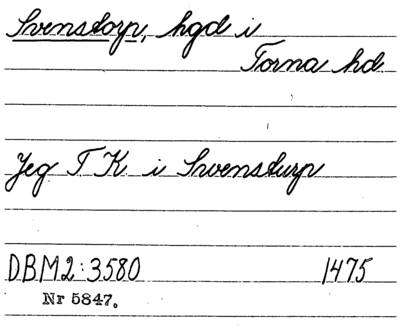 Svenstorp, hgd i
Torna hd.
Jeg T K i Swensturp
DBM2:3580 1475
Nr 5847.